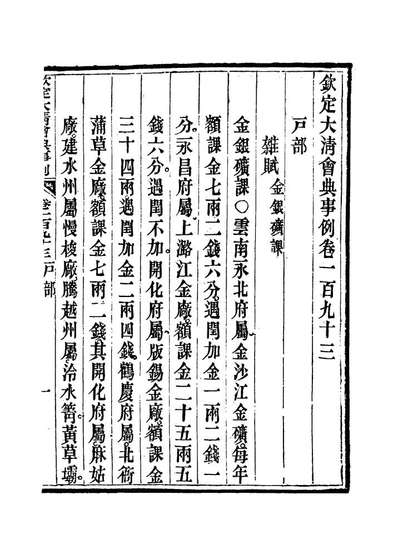 欽定大清會典事例卷一百九十三
戸部
雜賦金銀礦課
金銀礦課○雲南永北府屬金沙江金礦每年
額課金七兩二錢六分。遇閏加金一兩二錢一
分。永昌府屬上潞江金廠額課金二十五兩五
錢六分。遇閏不加。開化府屬版錫金廠額課金
三十四兩遇閏加金二兩四錢鶴慶府屬北衙
蒲草金廠額課金七兩二錢。其開化府屬麻姑
廠。建水州屬慢梭廠。騰越州屬冷水箐黃草壩。
欽定大清會典事例
卷一百九十三戸部
一